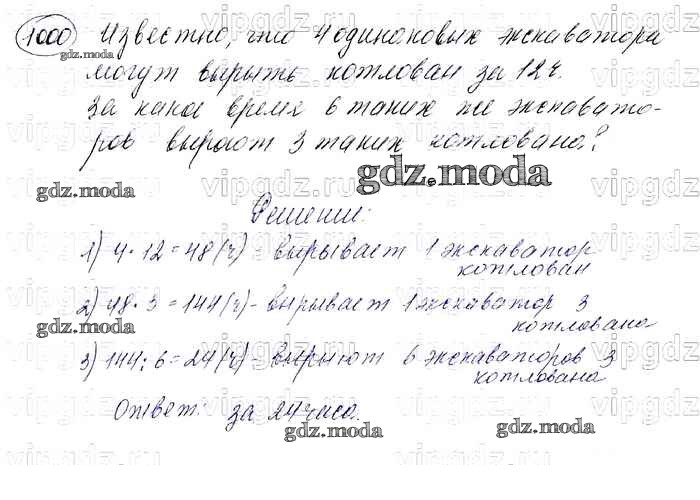 1000 Известно, что 4 одинаковых экскаватора
могут вырыть котлован за 12 ч.
За какое время 6 таких же экскавато-
ров выроют 3 таких котлована?
Решение:
1) 4 · 12 = 48 (ч) - вырывает 1 экскаватор
котлован
2) 48 · 3 = 144 (ч) - вырывает 1 экскаватор 3
котлована
3) 144 : 6 = 24 (ч) - вырыют 6 экскаваторов 3
котлована
Ответ: за 24 часа.
gdz.moda
vipgdz.ru